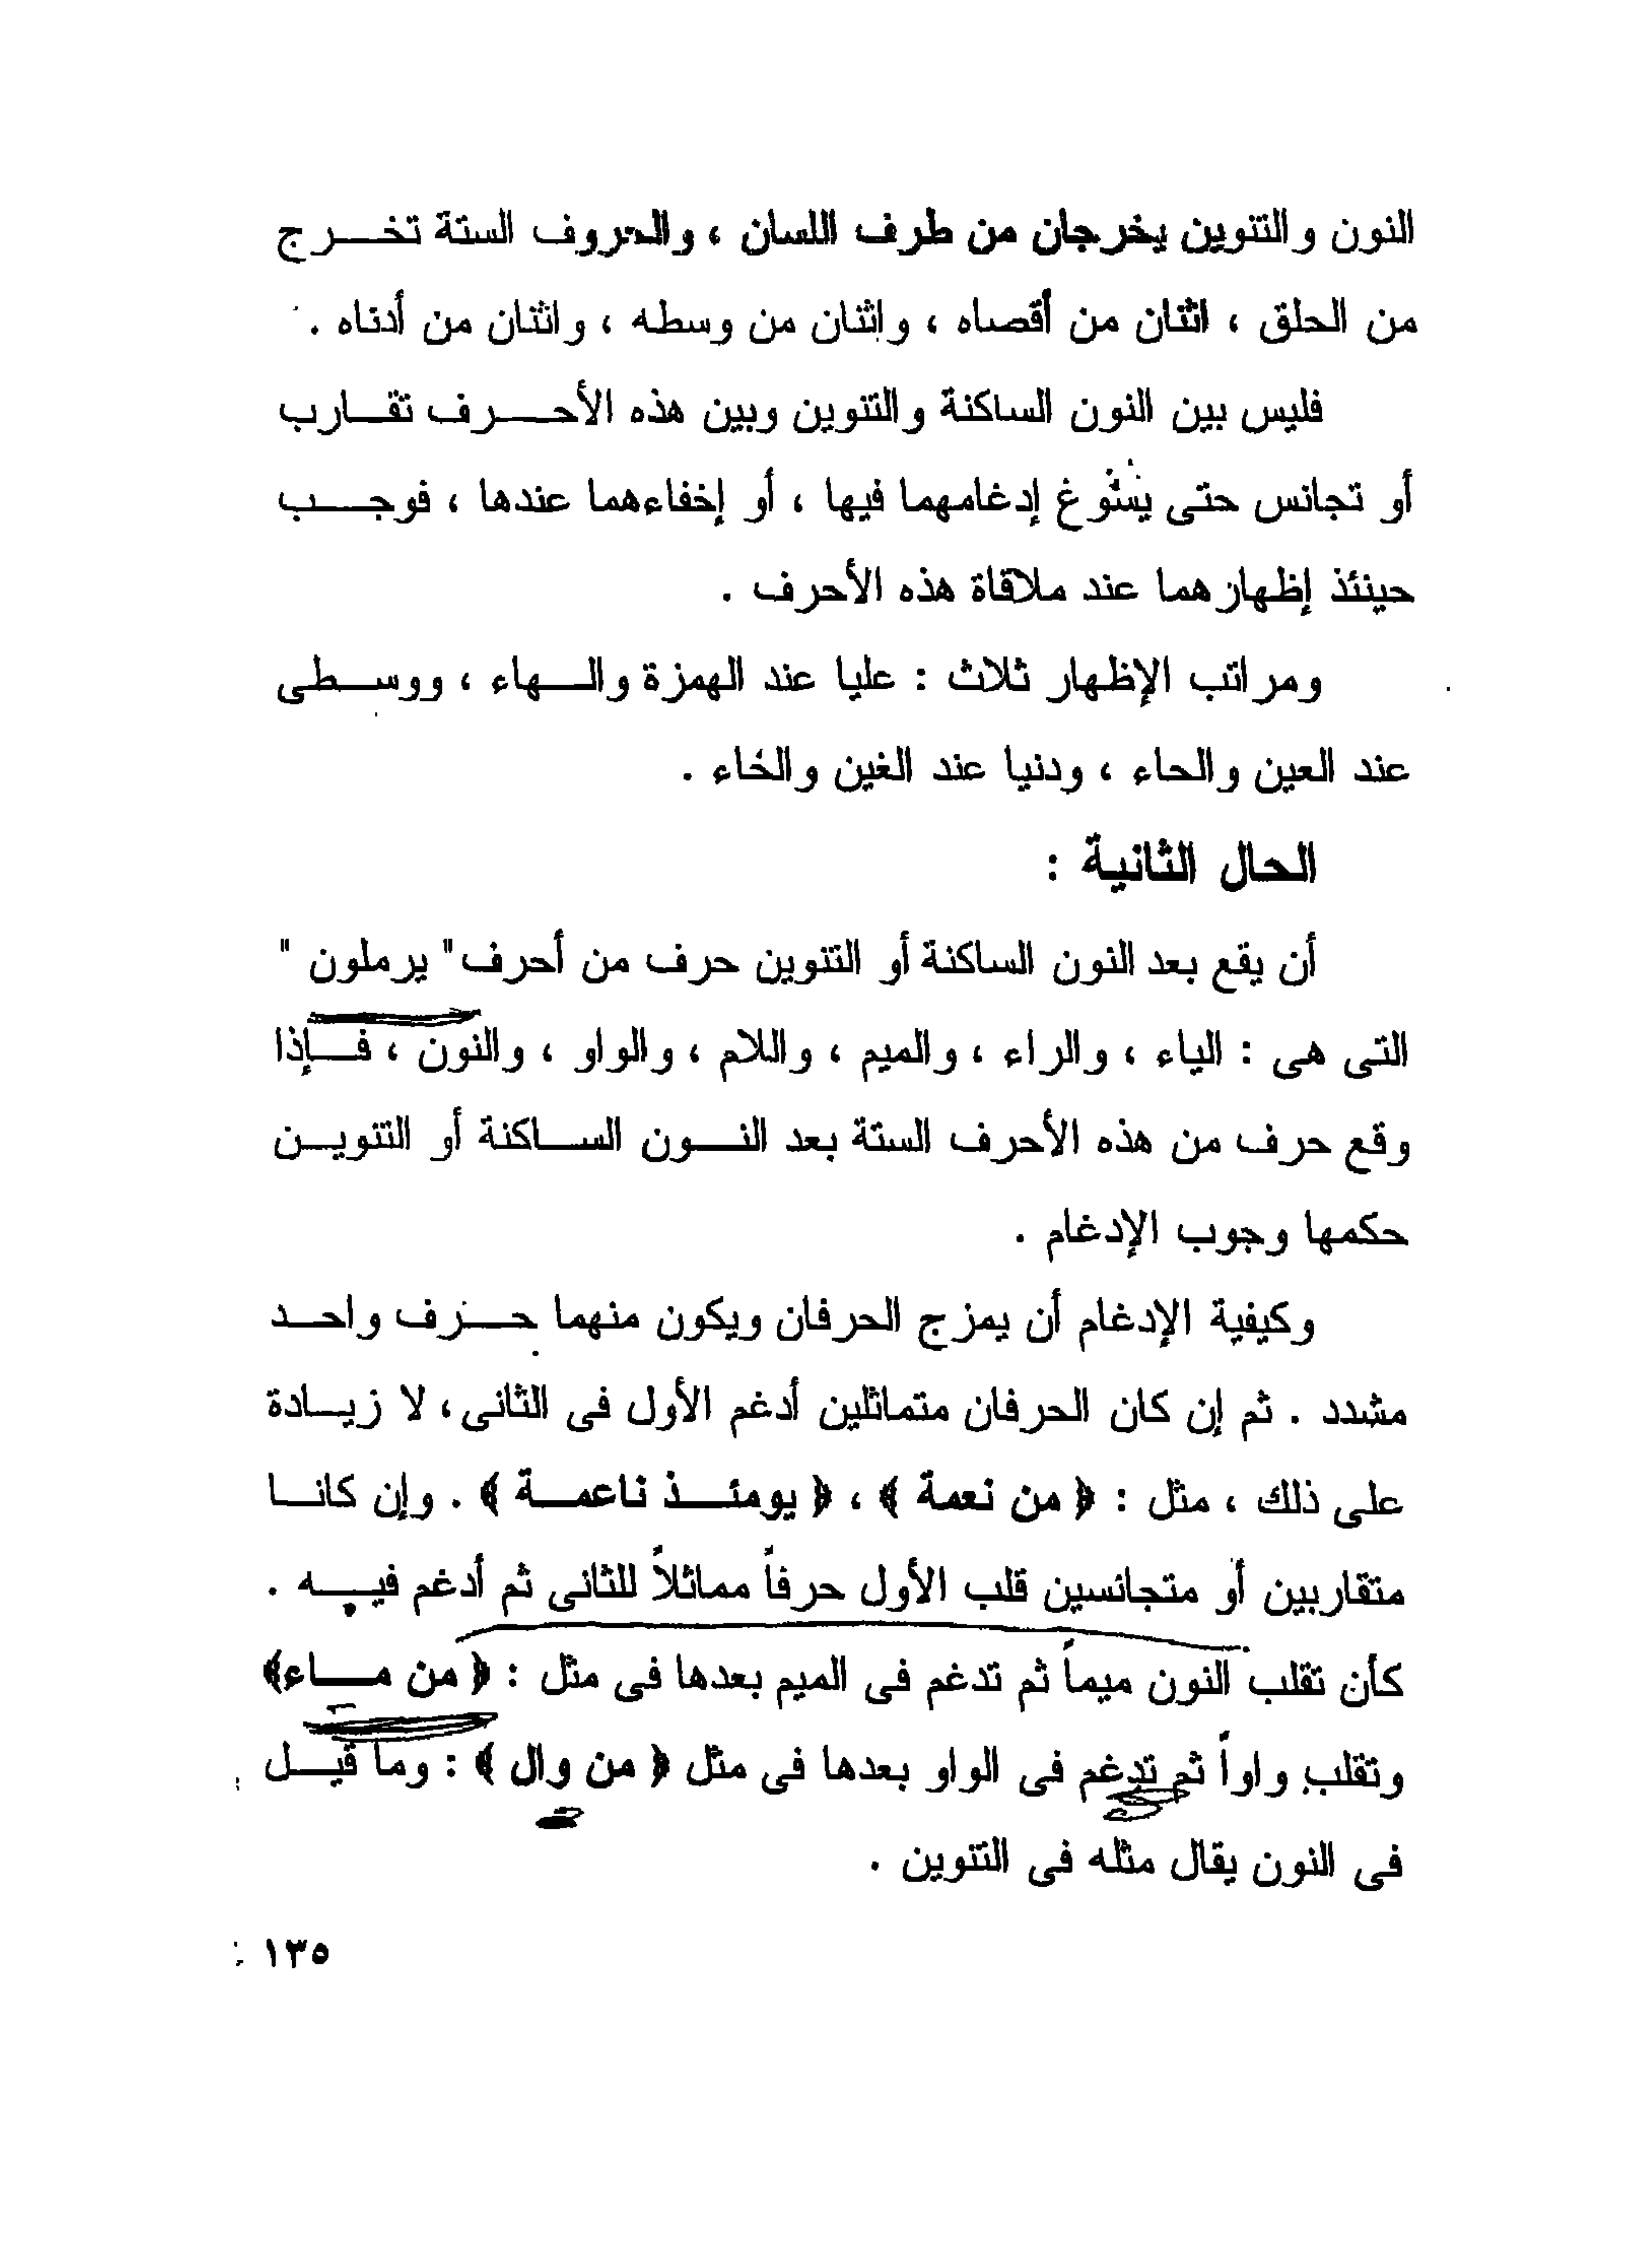 النون والتنوين يخرجان من طرف اللسان ، والحروف الستة تخرج
من الحلق ، اثنان من أقصاه ، واثنان من وسطه ، واثنان من أدناه .
فليس بين النون الساكنة والتنوين وبين هذه الأحرف تقارب
أو تجانس حتى يسوغ إدغامهما فيها ، أو إخفاءهما عندها ، فوجب
حينئذ إظهارهما عند ملاقاة هذه الأحرف .
ومراتب الإظهار ثلاث : عليا عند الهمزة والهاء ، ووسطى
عند العين والحاء ، ودنيا عند الغين والخاء .
الحال الثانية :
أن يقع بعد النون الساكنة أو التنوين حرف من أحرف " يرملون "
التى هى : الياء ، والراء ، والميم ، واللام ، والواو ، والنون ، فإذا
وقع حرف من هذه الأحرف الستة بعد النون الساكنة أو التنوين
حكمها وجوب الإدغام .
وكيفية الإدغام أن يمزج الحرفان ويكون منهما حرف واحد
مشدد . ثم إن كان الحرفان متماثلين أدغم الأول فى الثانى ، لا زيادة
على ذلك ، مثل : ﴿ من نعمة ﴾ ، ﴿ يومئذ ناعمة ﴾ . وإن كانا
متقاربين أو متجانسين قلب الأول حرفاً مماثلاً للثانى ثم أدغم فيه .
كأن تقلب النون ميماً ثم تدغم فى الميم بعدها فى مثل : ﴿ من ماء﴾
وتقلب واواً ثم تدغم فى الواو بعدها فى مثل ﴿ من وال ﴾ : وما قيل
فى النون يقال مثله فى التنوين .
١٣٥